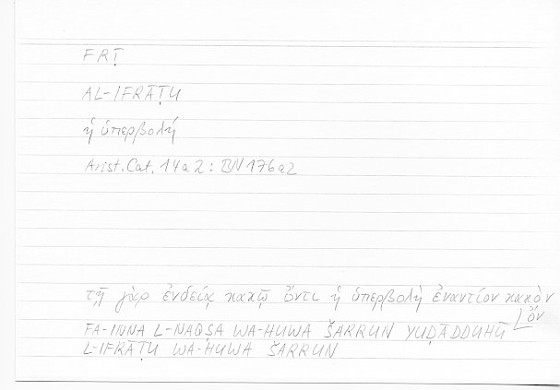 FRṬ
AL-IFRĀṬU
ἡ ὑπερβολή
Arist. Cat. 14a2: BN 176a2
τῇ γὰρ ἐνδείᾳ κακῷ ὄντι ἡ ὑπερβολὴ ἐναντίον κακὸν
ὄν
FA-INNA L-NAQṢA WA-HUWA ŠARRUN YUḌĀDDUHŪ
L-IFRĀṬU WA-HUWA ŠARRUN